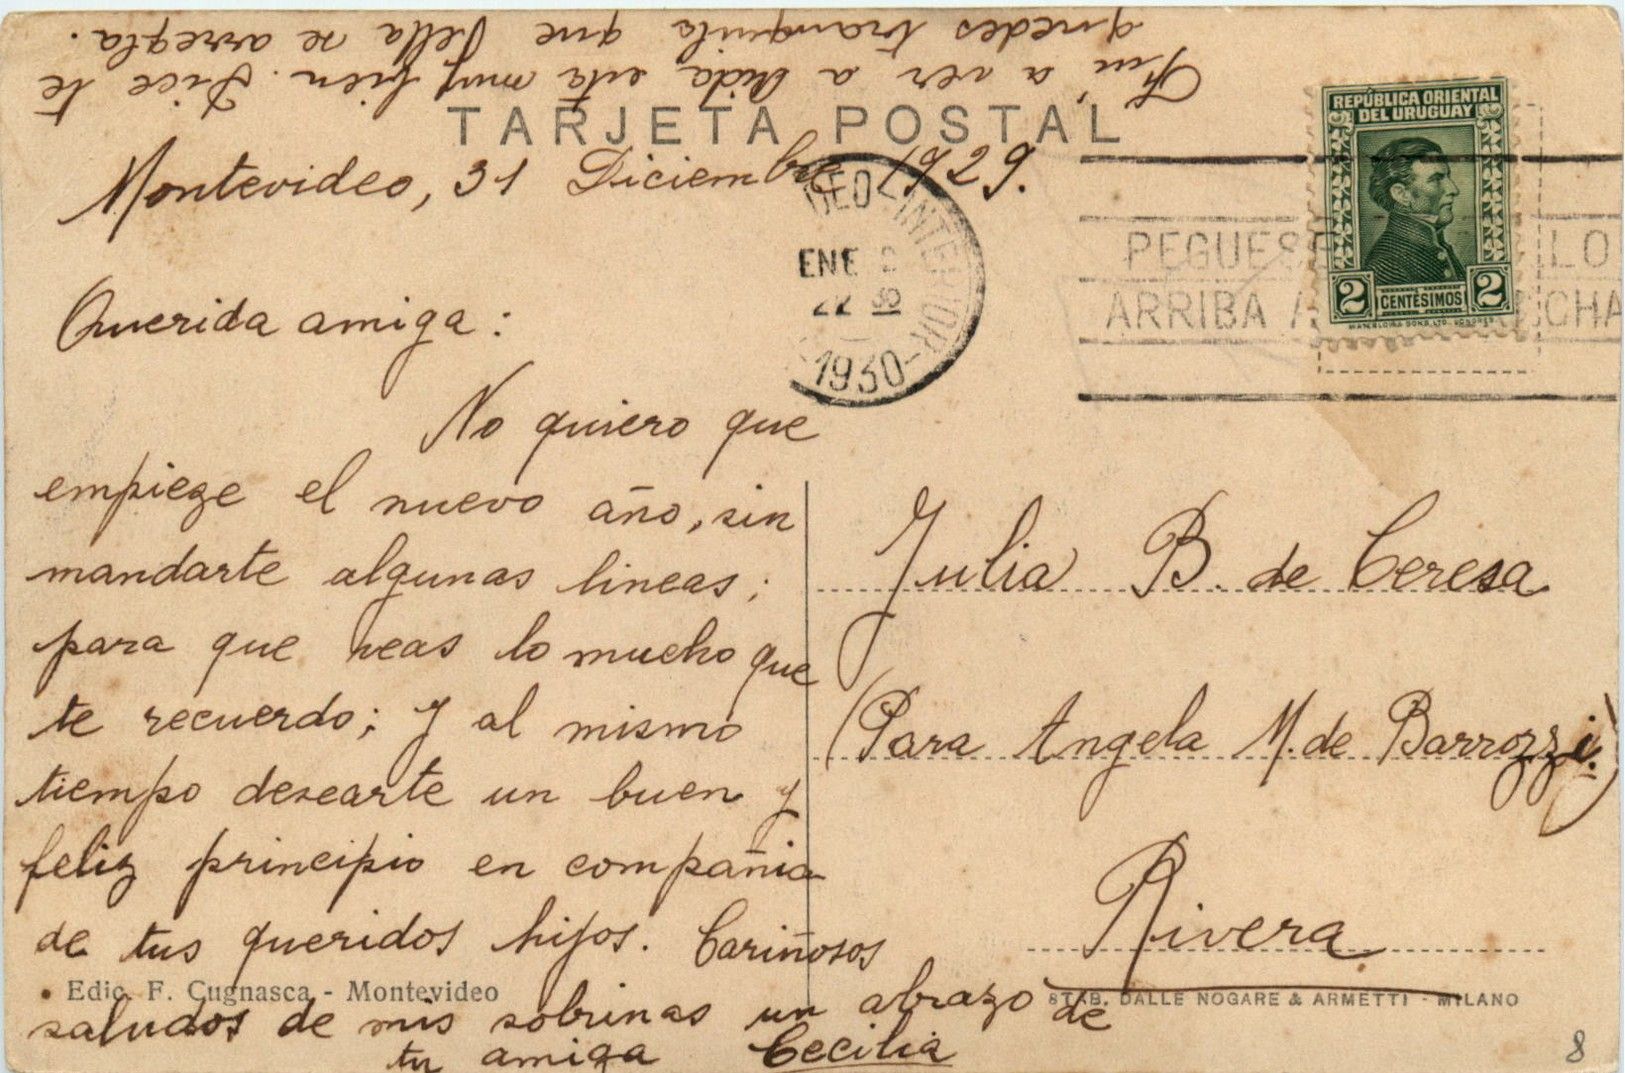 Fuí a ver a Aida está muy bien. Dice te
quedes tranquila que ella se arregla.
TARJETA POSTAL
Montevideo, 31 Diciembre 1929.
DEO-INTERIOR-
ENE
22
1930
REPÚBLICA ORIENTAL
DEL URUGUAY
2 CENTÉSIMOS 2
WATERLOW & SONS, LTD. LONDRES
PEGUESE LO
ARRIBA A CHA
Querida amiga:
No quiero que
empieze el nuevo año, sin
mandarte algunas lineas;
para que veas lo mucho que
te recuerdo; y al mismo
tiempo desearte un buen y
feliz principio en compañia
de tus queridos hijos. Cariñosos
saludos de mis sobrinas un abrazo de
tu amiga Cecilia
Julia B. de Ceresa
(Para Angela M. de Barrozzi.)
Rivera
Edic. F. Cugnasca - Montevideo
STAB. DALLE NOGARE & ARMETTI - MILANO
8